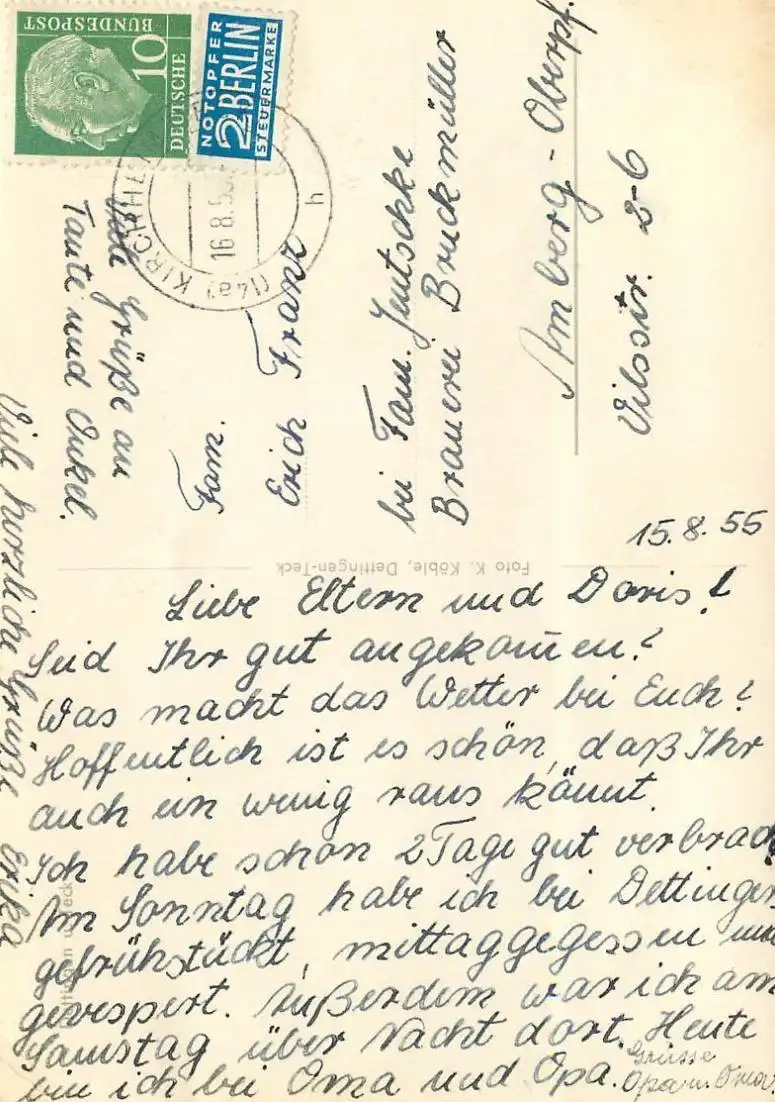 DEUTSCHE
BUNDESPOST
10
NOTOPFER
2 BERLIN
STEUERMARKE
(14a) KIRCHH
16.8.5
h
Fam.
Erich Franz
bei Fam. Jentschke
Brauerei Bruckmüller
Amberg-Oberpf.
Vilsstr. 2-6
Viele Grüße an
Tante und Onkel.
Foto K. Köble, Dettingen-Teck
15.8.55
Liebe Eltern und Doris!
Seid Ihr gut angekom̄en?
Was macht das Wetter bei Euch?
Hoffentlich ist es schön, daß Ihr
auch ein wenig raus könnt.
Ich habe schon 2 Tage gut verbrach
Am Sonntag habe ich bei Dettinger
gefrühstückt, mittaggegessen und
gevespert. Außerdem war ich am
Samstag über Nacht dort. Heute
bin ich bei Oma und Opa.
Grüsse
Opa u. Oma
Viele herzliche Grüße Erika